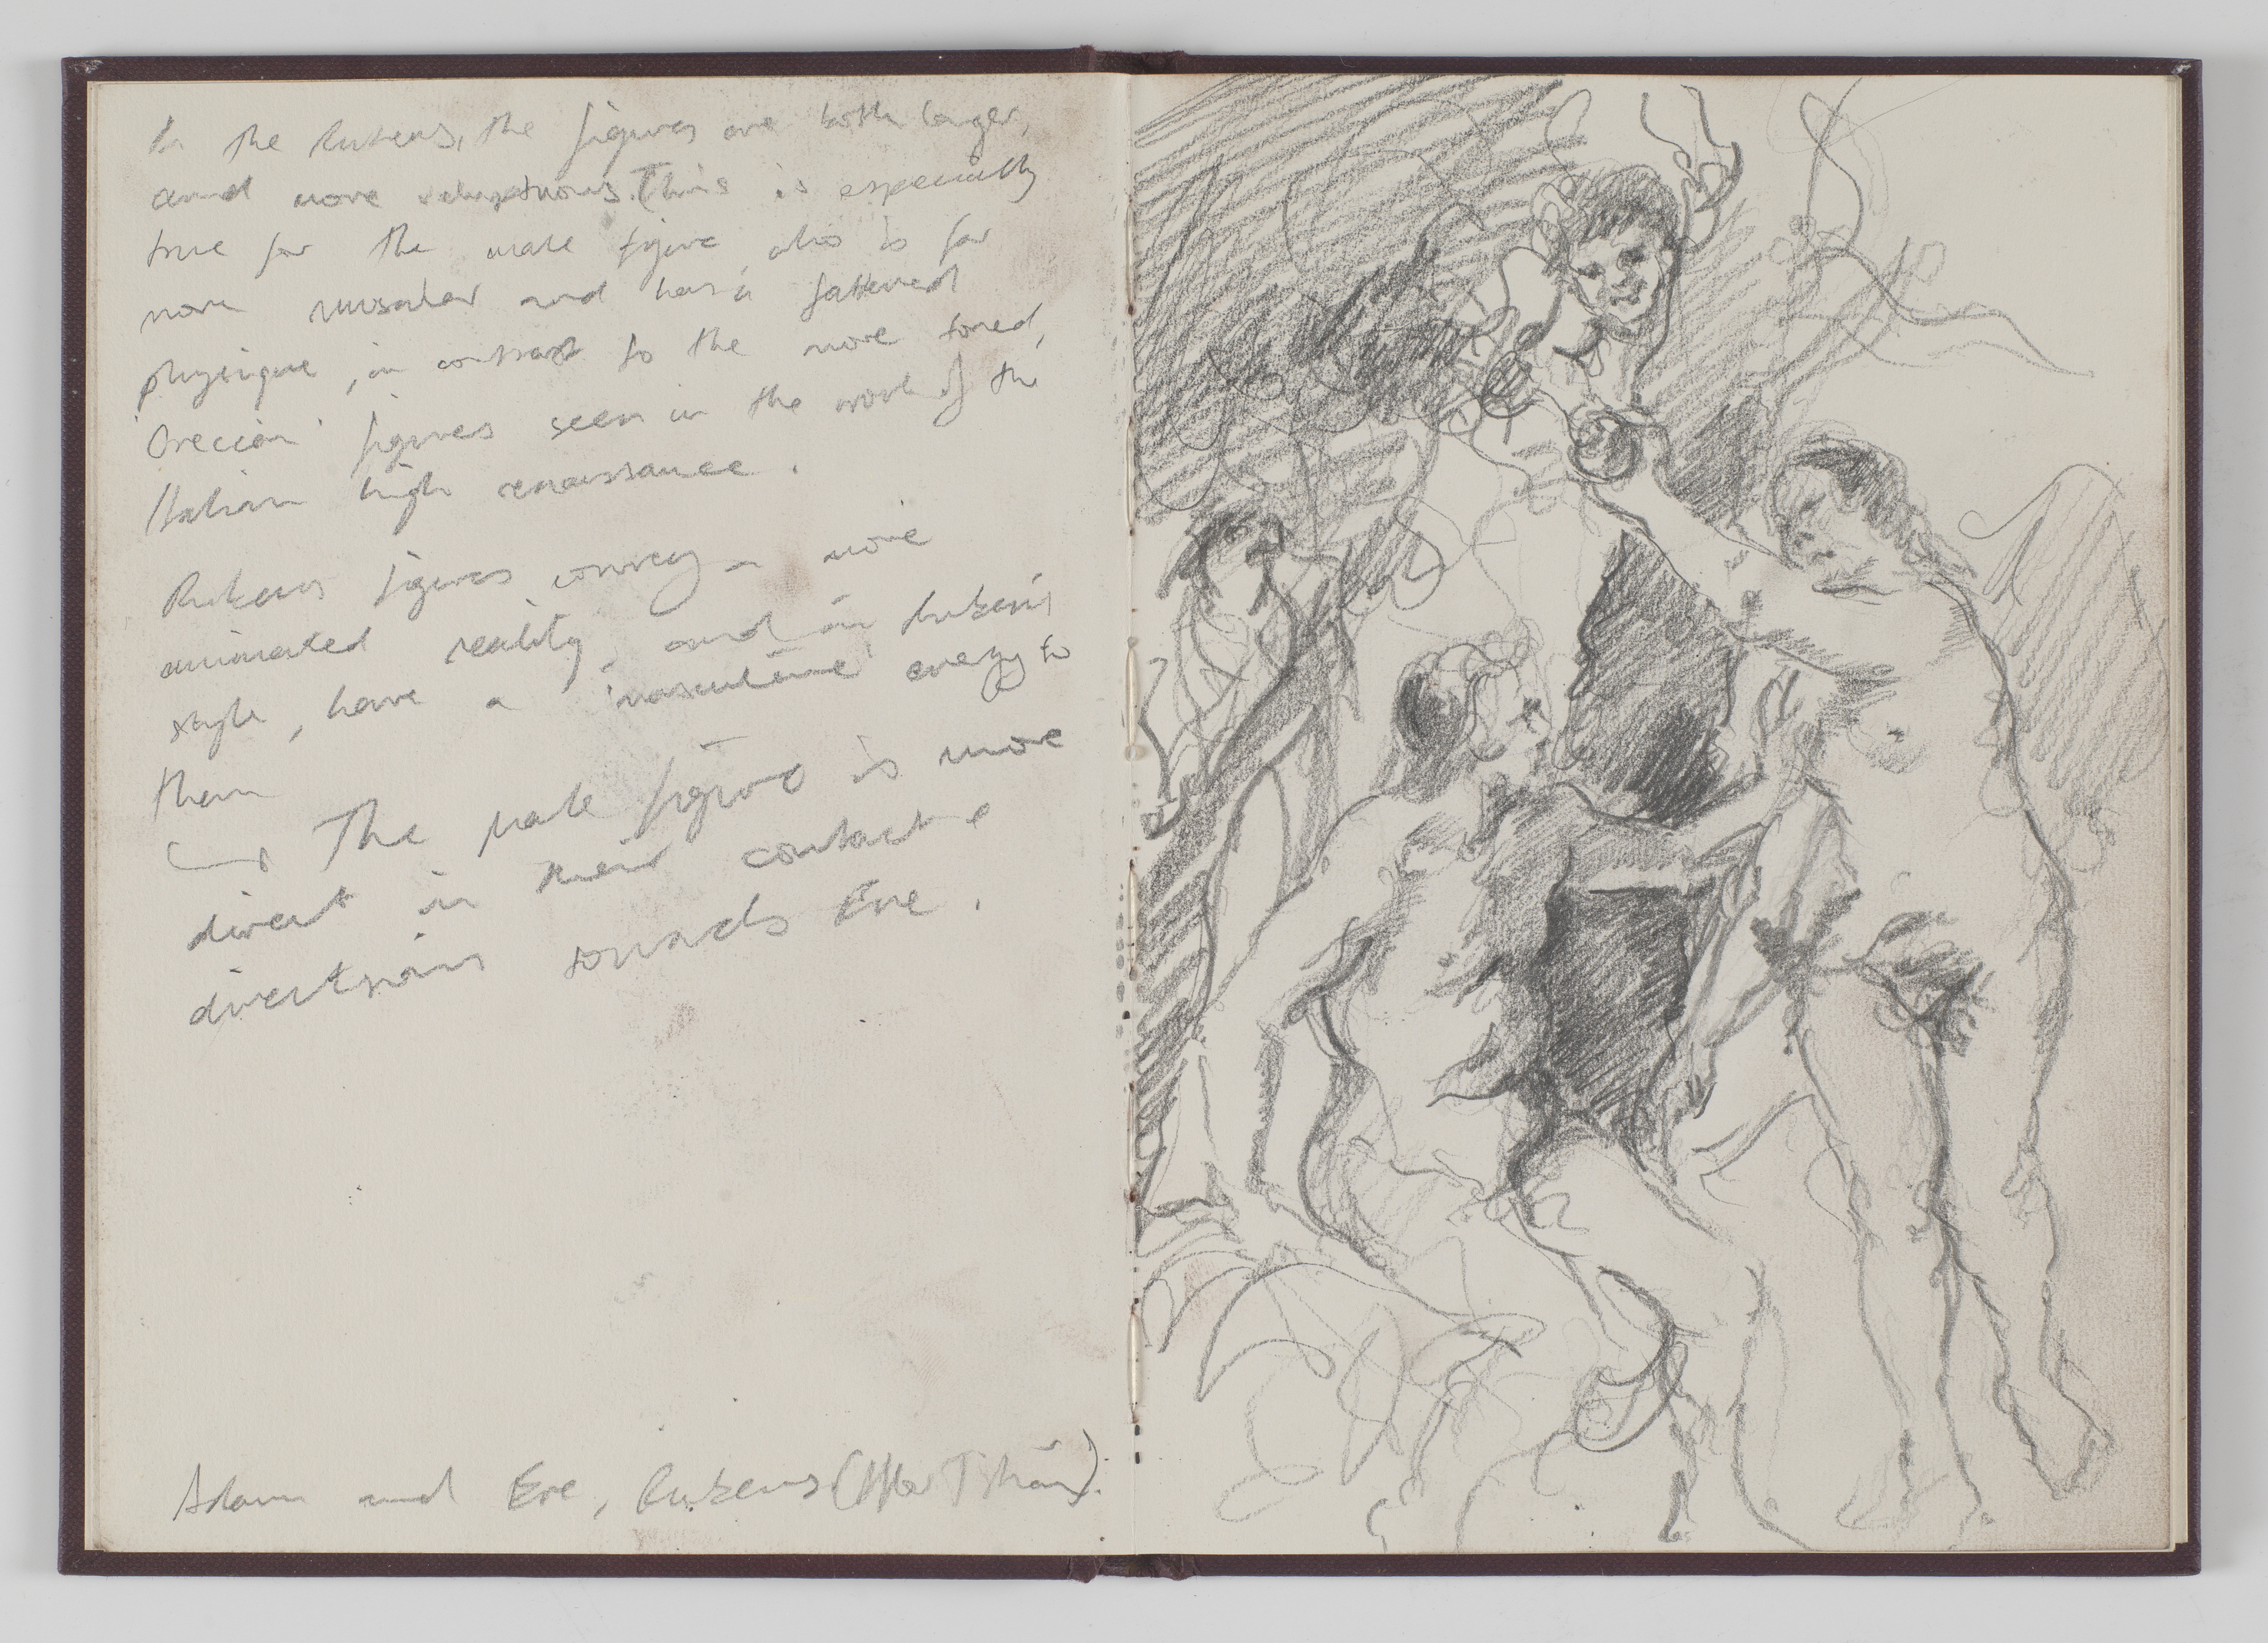 In the Rubens, the figures are both larger,
and more voluptuous. This is especially
true for the male figure who is far
more muscular and has a fattened
physique, in contrast to the more toned,
'Grecian' figures seen in the work of the
Italian high renaissance.
Rubens figures convey a more
animated reality, and in Ruben's
style, have a 'masculine' energy to
them
The male figure is more
direct in their contact &
directions towards Eve.
Adam and Eve, Rubens (After Titian).